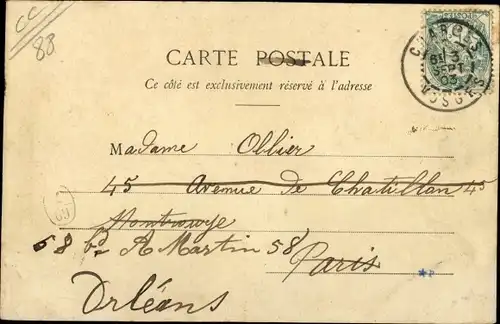 CC
88
CHARMES
6E 3
SEPT
03
VOSGES
CARTE POSTALE
Ce côté est exclusivement réservé à l'adresse
Madame Ollier
45 Avenue de Chatillon 45
Montrouge
58 bd A Martin 58 Paris
Orléans